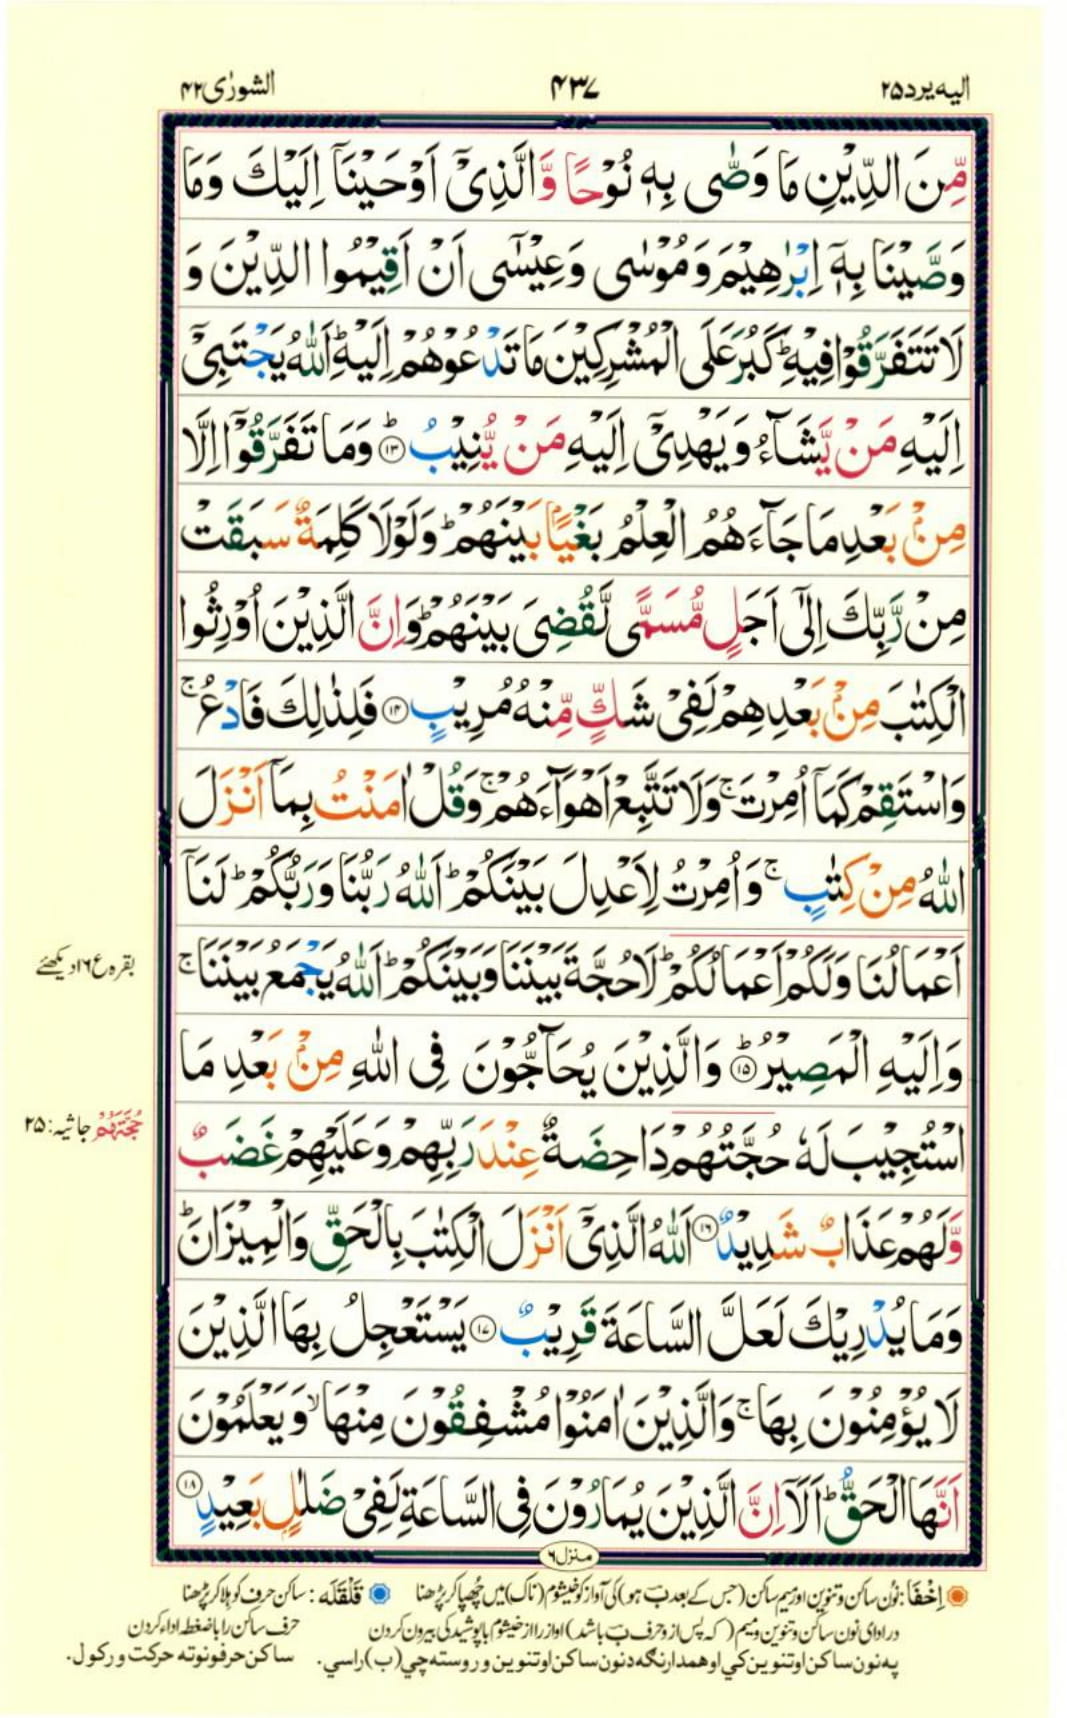 الیه یرد ۲۵
۴۳۷
الشورٰی ۴۲
مِّنَ الدِّیْنِ مَا وَصّٰی بِهٖ نُوْحًا وَّالَّذِیْۤ اَوْحَیْنَاۤ اِلَیْكَ وَمَا
وَصَّیْنَا بِهٖۤ اِبْرٰهِیْمَ وَمُوْسٰی وَعِیْسٰۤی اَنْ اَقِیْمُوا الدِّیْنَ وَ
لَا تَتَفَرَّقُوْا فِیْهِ ؕ كَبُرَ عَلَی الْمُشْرِكِیْنَ مَا تَدْعُوْهُمْ اِلَیْهِ ؕ اَللّٰهُ یَجْتَبِیْۤ
اِلَیْهِ مَنْ یَّشَآءُ وَیَهْدِیْۤ اِلَیْهِ مَنْ یُّنِیْبُ ؕ﴿۱۳﴾ وَمَا تَفَرَّقُوْۤا اِلَّا
مِنْۢ بَعْدِ مَا جَآءَهُمُ الْعِلْمُ بَغْیًۢا بَیْنَهُمْ ؕ وَلَوْلَا كَلِمَةٌ سَبَقَتْ
مِنْ رَّبِّكَ اِلٰۤی اَجَلٍ مُّسَمًّی لَّقُضِیَ بَیْنَهُمْ ؕ وَاِنَّ الَّذِیْنَ اُوْرِثُوا
الْكِتٰبَ مِنْۢ بَعْدِهِمْ لَفِیْ شَكٍّ مِّنْهُ مُرِیْبٍ ﴿۱۴﴾ فَلِذٰلِكَ فَادْعُ ۚ
وَاسْتَقِمْ كَمَاۤ اُمِرْتَ ۚ وَلَا تَتَّبِعْ اَهْوَآءَهُمْ ۚ وَقُلْ اٰمَنْتُ بِمَاۤ اَنْزَلَ
اللّٰهُ مِنْ كِتٰبٍ ۚ وَاُمِرْتُ لِاَعْدِلَ بَیْنَكُمْ ؕ اَللّٰهُ رَبُّنَا وَرَبُّكُمْ ؕ لَنَاۤ
اَعْمَالُنَا وَلَكُمْ اَعْمَالُكُمْ ؕ لَا حُجَّةَ بَیْنَنَا وَبَیْنَكُمْ ؕ اَللّٰهُ یَجْمَعُ بَیْنَنَا ۚ
بقرہ ع۱۶ دیکھئے
وَاِلَیْهِ الْمَصِیْرُ ؕ﴿۱۵﴾ وَالَّذِیْنَ یُحَآجُّوْنَ فِی اللّٰهِ مِنْۢ بَعْدِ مَا
اسْتُجِیْبَ لَهٗ حُجَّتُهُمْ دَاحِضَةٌ عِنْدَ رَبِّهِمْ وَعَلَیْهِمْ غَضَبٌ
حُجَّتَهُمْ جاثیہ: ۲۵
وَّلَهُمْ عَذَابٌ شَدِیْدٌ ﴿۱۶﴾ اَللّٰهُ الَّذِیْۤ اَنْزَلَ الْكِتٰبَ بِالْحَقِّ وَالْمِیْزَانَ ؕ
وَمَا یُدْرِیْكَ لَعَلَّ السَّاعَةَ قَرِیْبٌ ﴿۱۷﴾ یَسْتَعْجِلُ بِهَا الَّذِیْنَ
لَا یُؤْمِنُوْنَ بِهَا ۚ وَالَّذِیْنَ اٰمَنُوْا مُشْفِقُوْنَ مِنْهَا ۙ وَیَعْلَمُوْنَ
اَنَّهَا الْحَقُّ ؕ اَلَاۤ اِنَّ الَّذِیْنَ یُمَارُوْنَ فِی السَّاعَةِ لَفِیْ ضَلٰلٍۭ بَعِیْدٍ ﴿۱۸﴾
منزل ۶
اِخفَا: نُون ساکن و تنوین اور میم ساکن (جس کے بعد بَ ہو) کی آواز کو خیشوم (ناک) میں چُھپا کر پڑھنا
قَلْقَلَه: ساکن حرف کو ہلا کر پڑھنا
در ادای نون ساکن و تنوین و میم (که پس از و حرف بَ باشد) آواز را از خیشوم با پوشیدگی بیرون کردن
حرف ساکن را باضغطه ادا کردن
په نون ساکن او تنوین کي او همدارنګه د نون ساکن او تنوین و روسته چي (ب) راسي.
ساکن حرفونو ته حرکت ورکول.